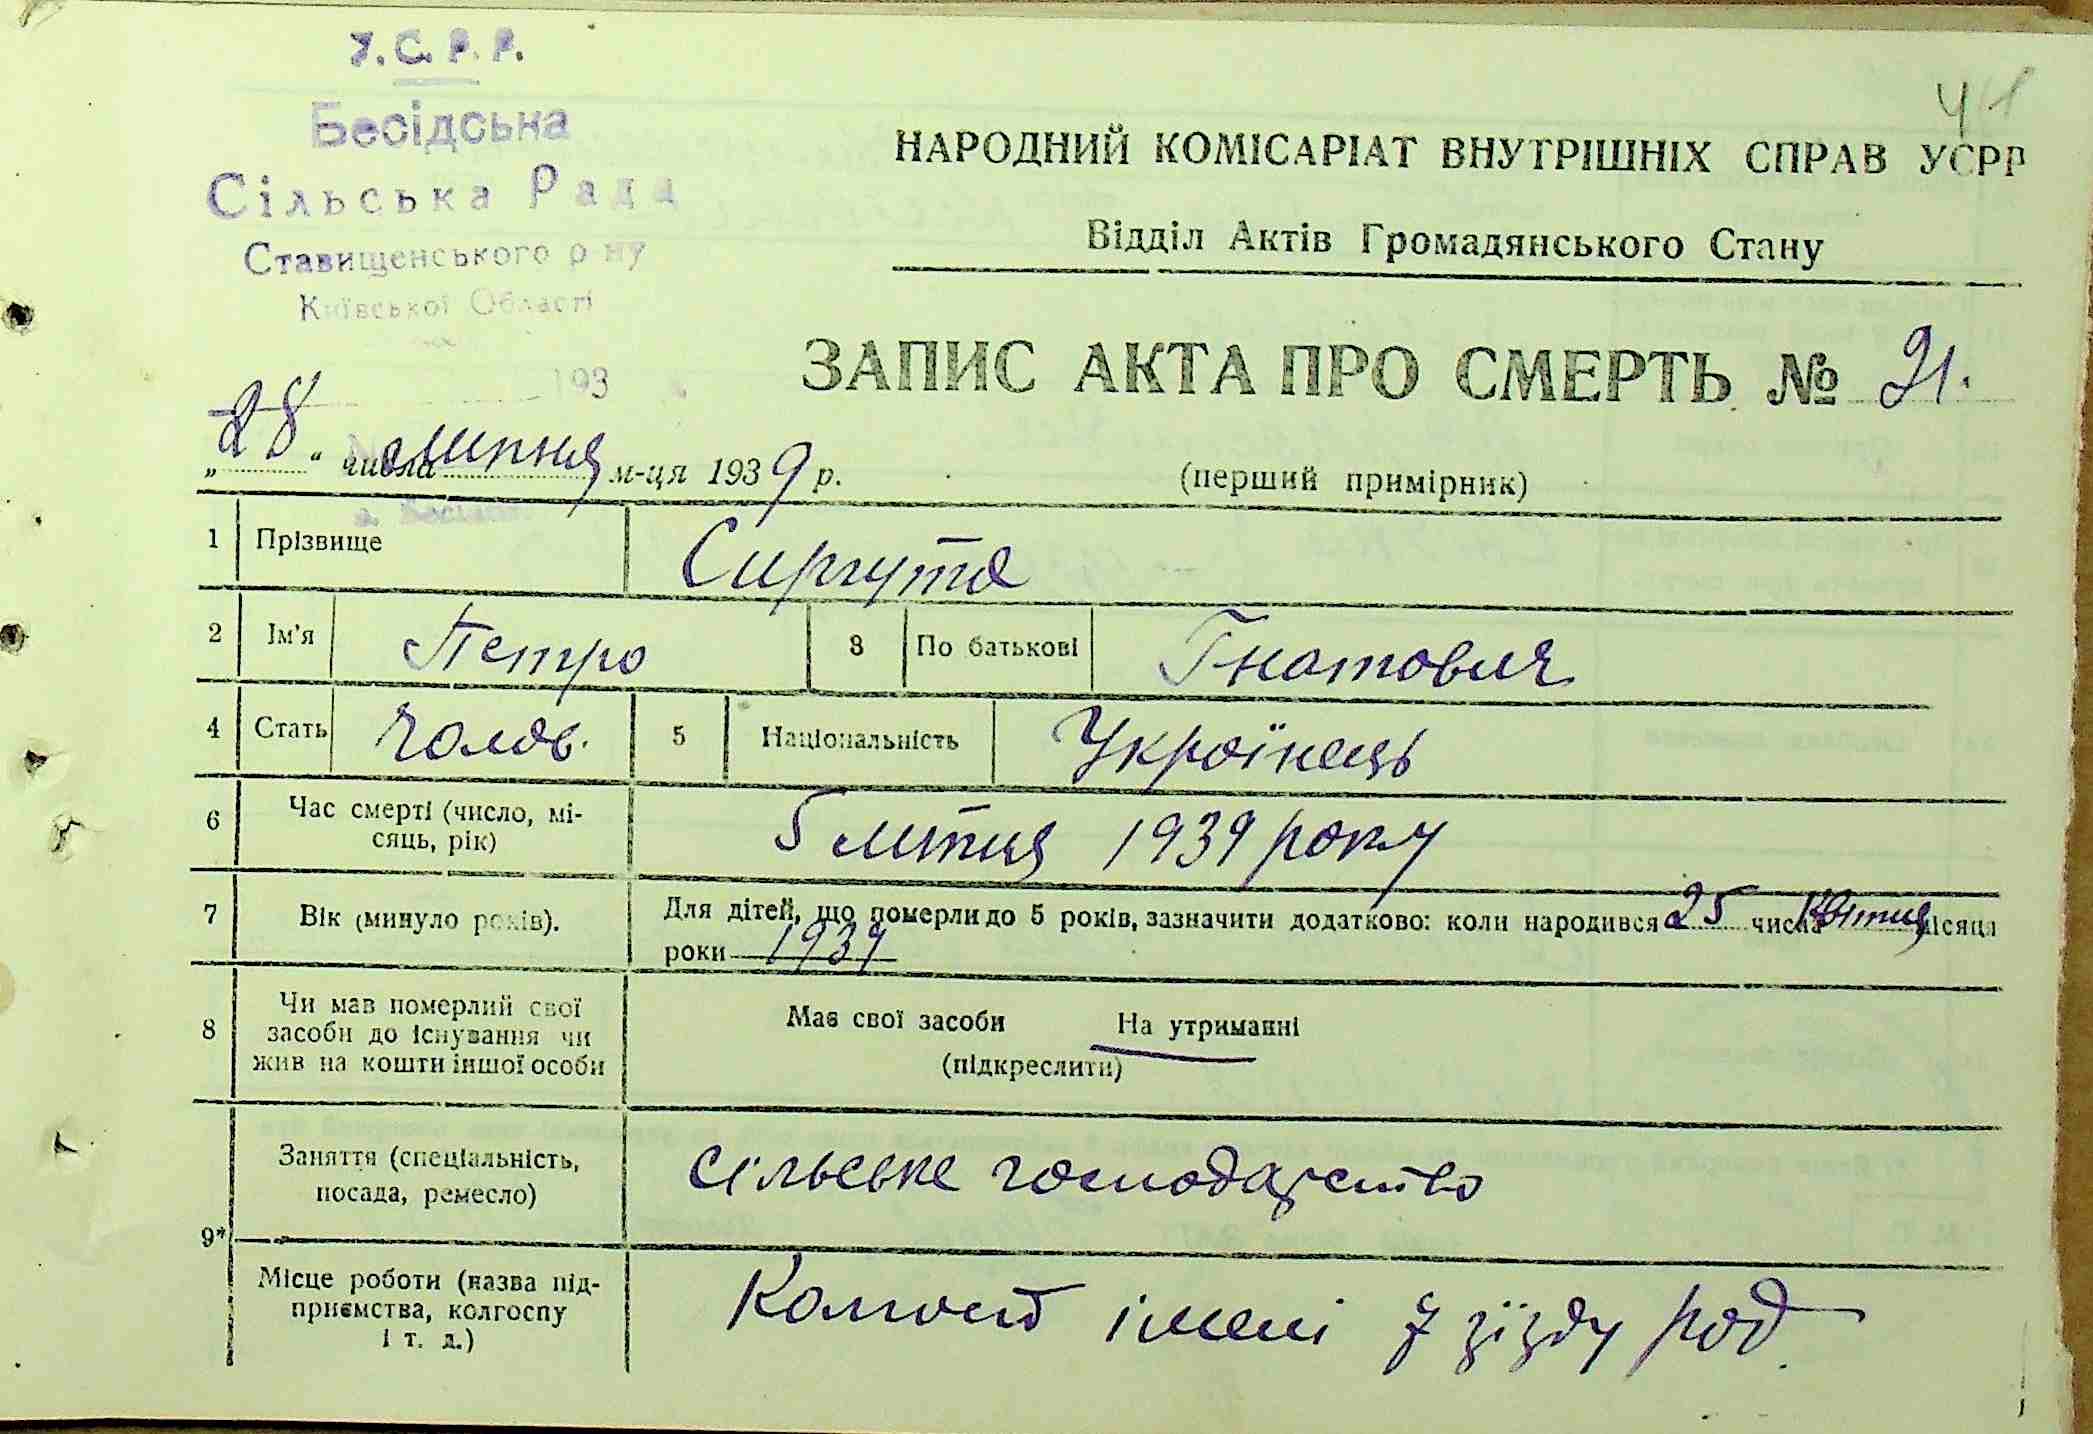 У.С.Р.Р.
Бесідська
Сільська Рада
Ставищенського р-ну
Київської Області
193
41
НАРОДНИЙ КОМІСАРІАТ ВНУТРІШНІХ СПРАВ УСРР
Відділ Актів Громадянського Стану
ЗАПИС АКТА ПРО СМЕРТЬ № 21.
„28“ числа липня м-ця 1939 р.
(перший примірник)
1 Прізвище Сиргута
2 Ім'я Петро 3 По батькові Гнатович
4 Стать Чолов. 5 Національність Українець
6 Час смерті (число, мі-
сяць, рік) 5 липня 1939 року
7 Вік (минуло років). Для дітей, що померли до 5 років, зазначити додатково: коли народився 25 числа місяця
роки 1939
8 Чи мав померлий свої
засоби до існування чи
жив на кошти іншої особи
Має свої засоби На утриманні
(підкреслити)
9* Заняття (спеціальність,
посада, ремесло) сільське господарство
Місце роботи (назва під-
приємства, колгоспу
і т. д.) Колгосп імені 7 зїзду рад.